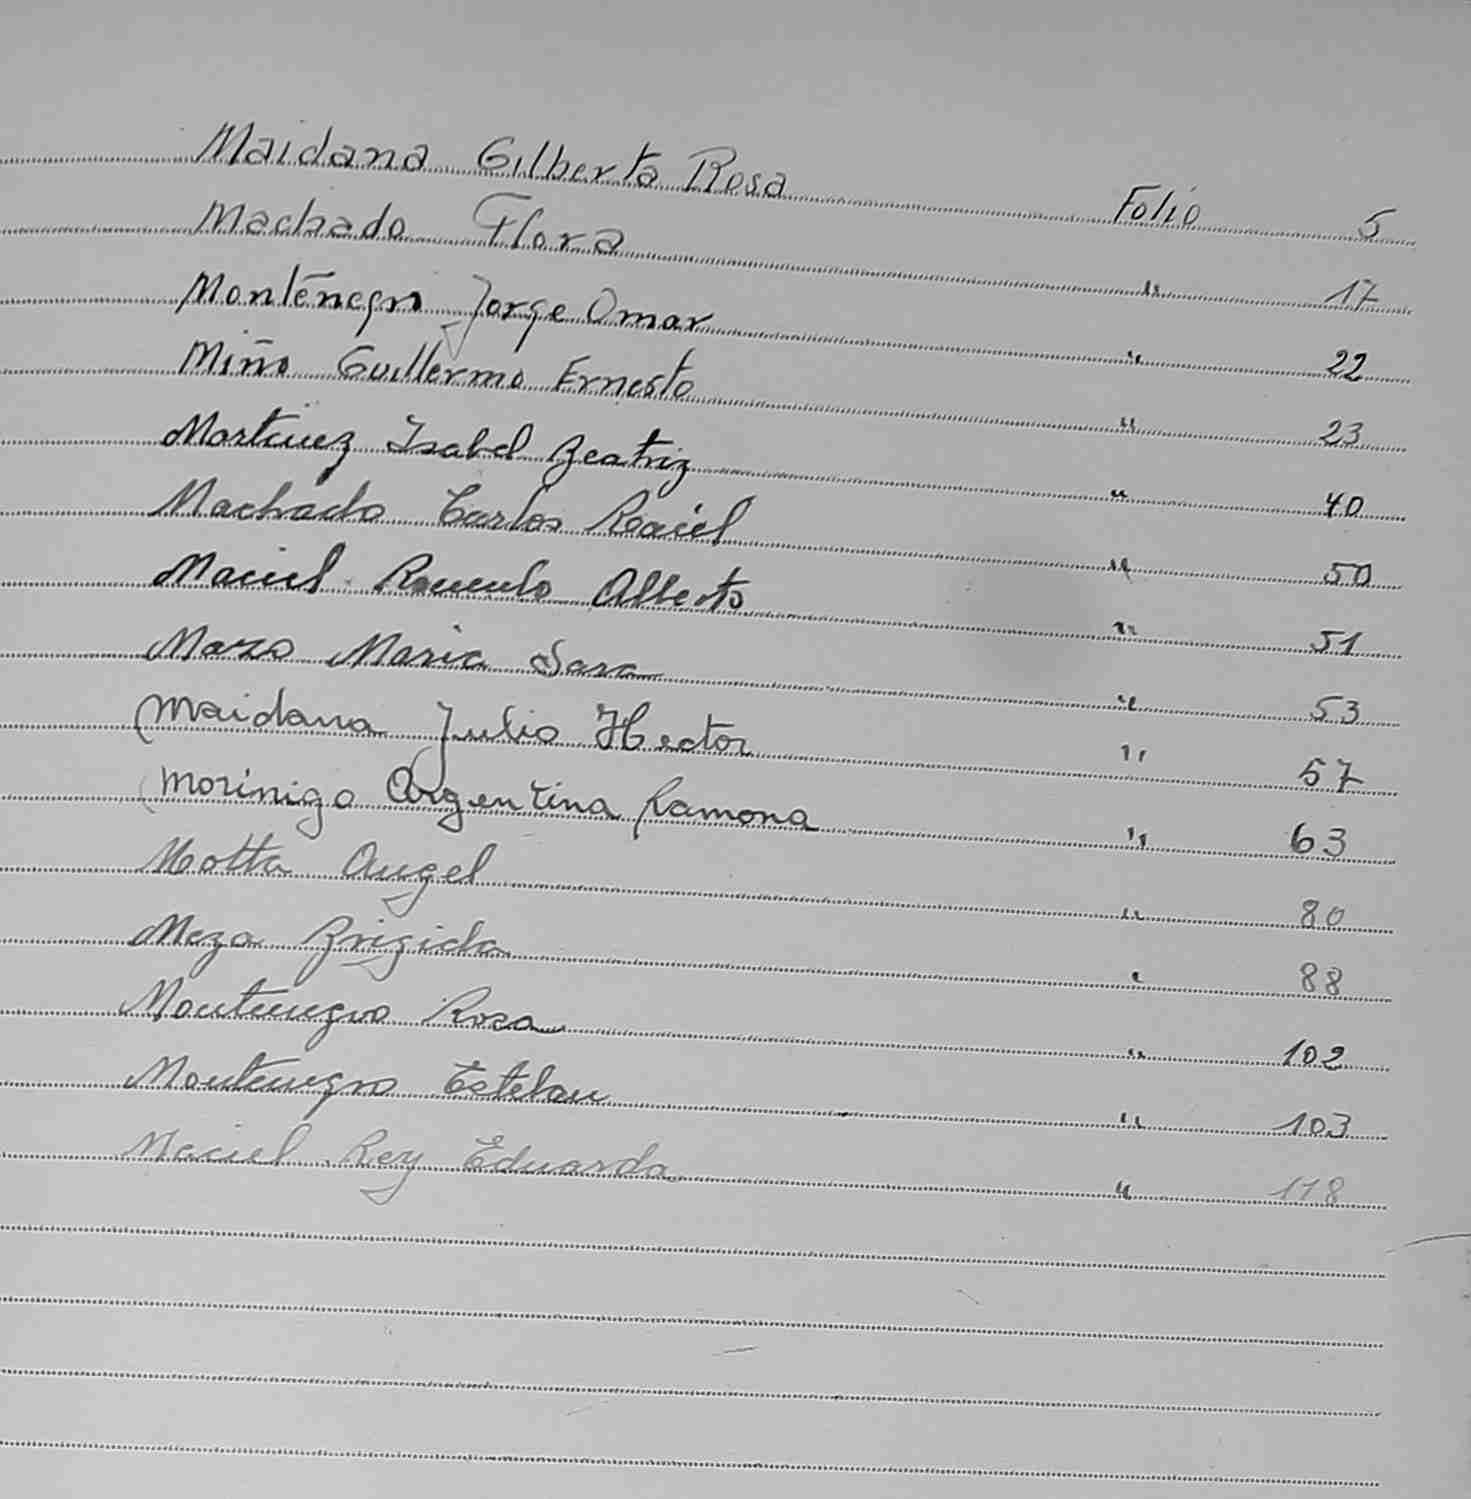 Maidana Gilberta Rosa Folio 5
Machado Flora " 17
Montenegro Jorge Omar " 22
Miño Guillermo Ernesto " 23
Martinez Isabel Beatriz " 40
Machado Carlos " 50
Maciel Romulo Alberto " 51
Mazo Maria Sara " 53
Maidana Julio Hector " 57
Morinigo Argentina Ramona " 63
Motta Angel " 80
Meza Brigida " 88
Montenegro Rosa " 102
Montenegro Esteban " 103
Maciel Rey Eduardo " 118